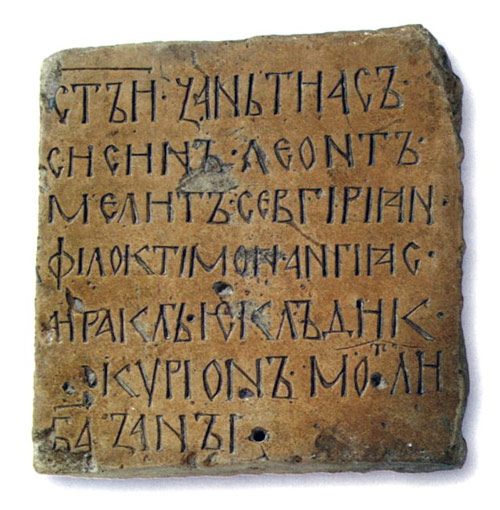 СТЪИ · ѮАНЬТИАСЪ ·
СИСИНЪ · ЛЕОНТЪ ·
МЕЛИТЪ · СЕВГІРІꙖН ·
ФІЛОКТІМОН · АНГІꙖС ·
ИРАКЛЪ · ІСКЛЪДИК ·
КУРІОНЪ · МОⷮЛИ
БА ZАНЪІ ·